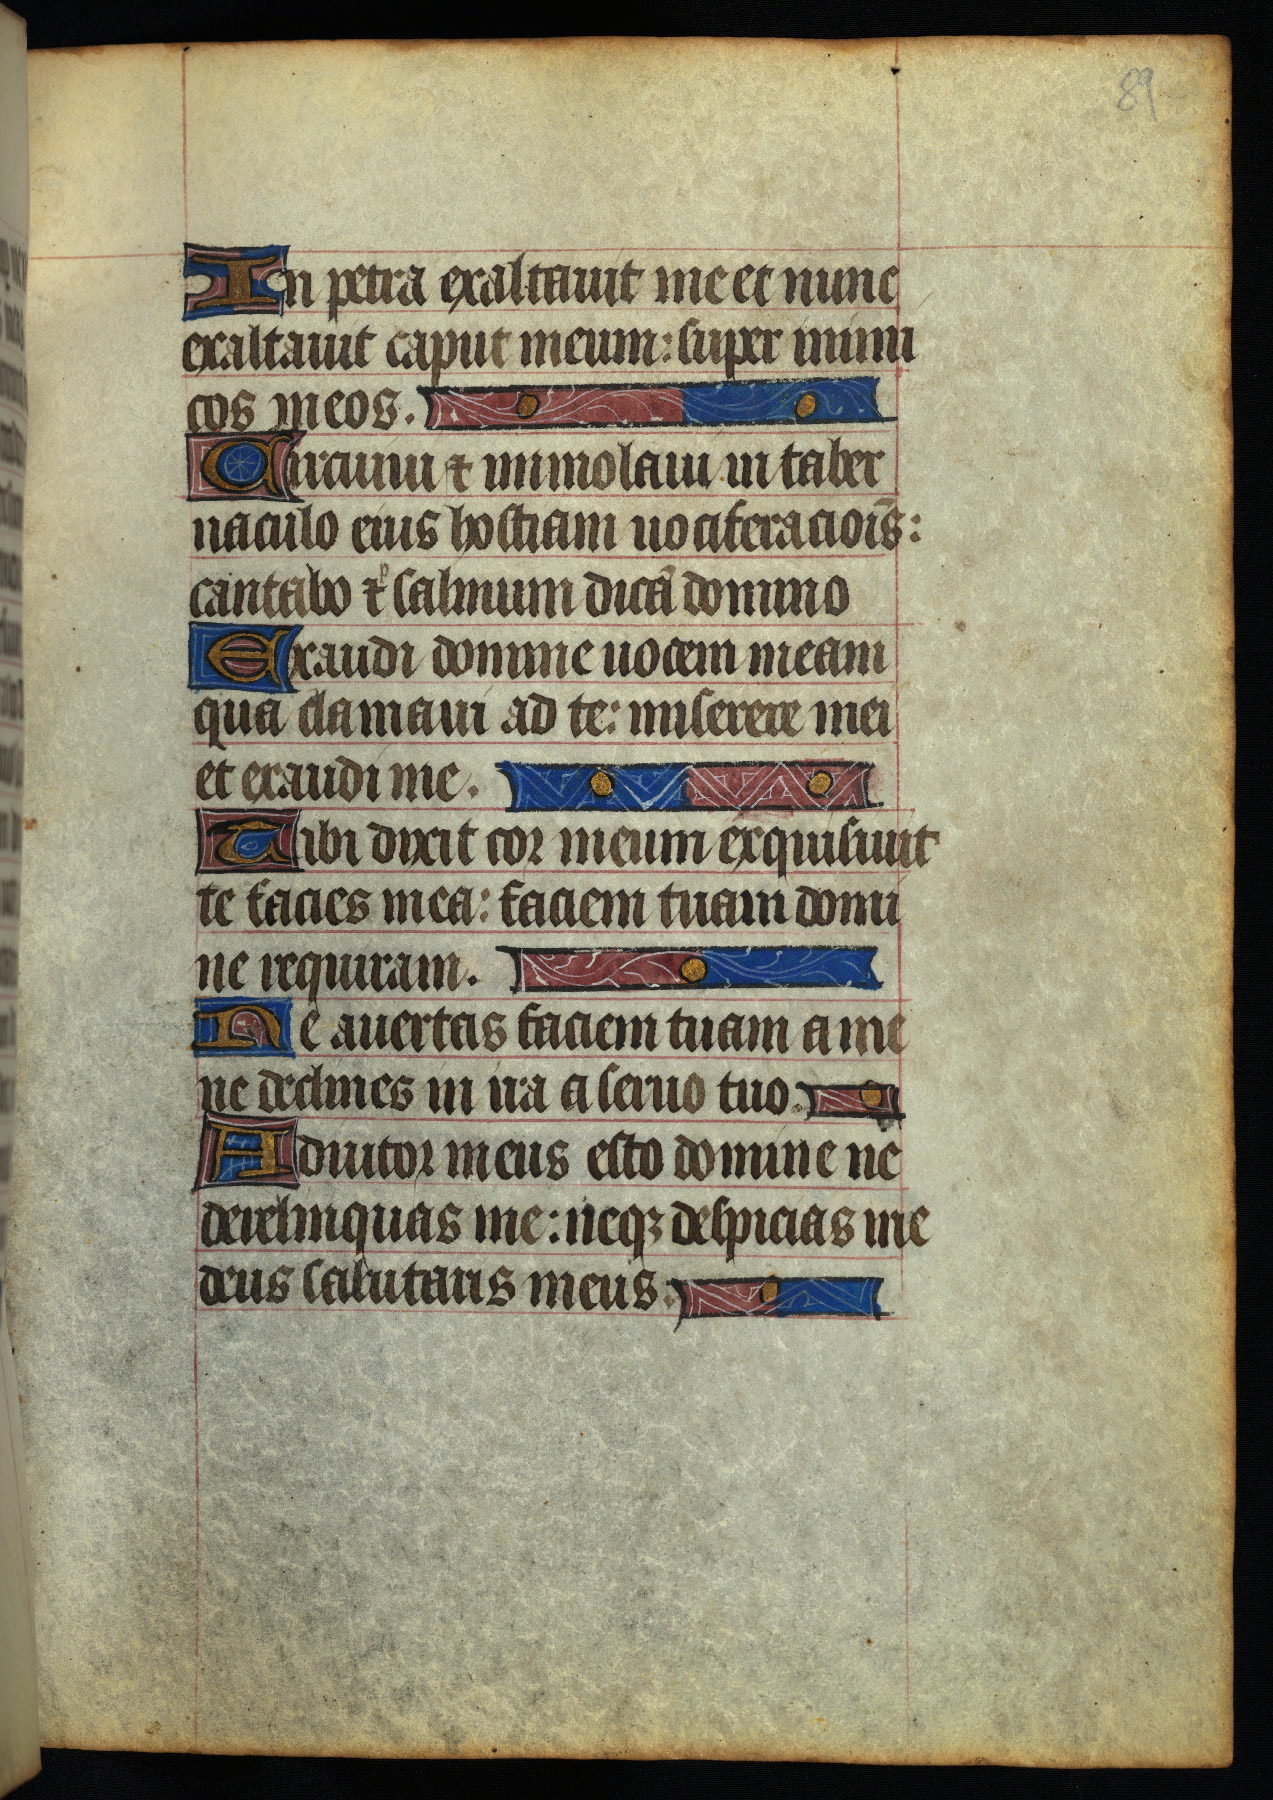 89
In petra exaltauit me et nunc
exaltauit caput meum: super inimi
cos meos.
Circuiui ⁊ immolaui in taber
naculo eius hostiam uociferacioīs:
cantabo ⁊ psalmum dicā domino
Exaudi domine uocem meam
qua clamaui ad te: miserere mei
et exaudi me.
Tibi dixit cor meum exquisiuit
te facies mea: faciem tuam domi
ne requiram.
Ne auertas faciem tuam a me
ne declines in ira a seruo tuo.
Adiutor meus esto domine ne
derelinquas me: neqꝫ despicias me
deus salutaris meus: